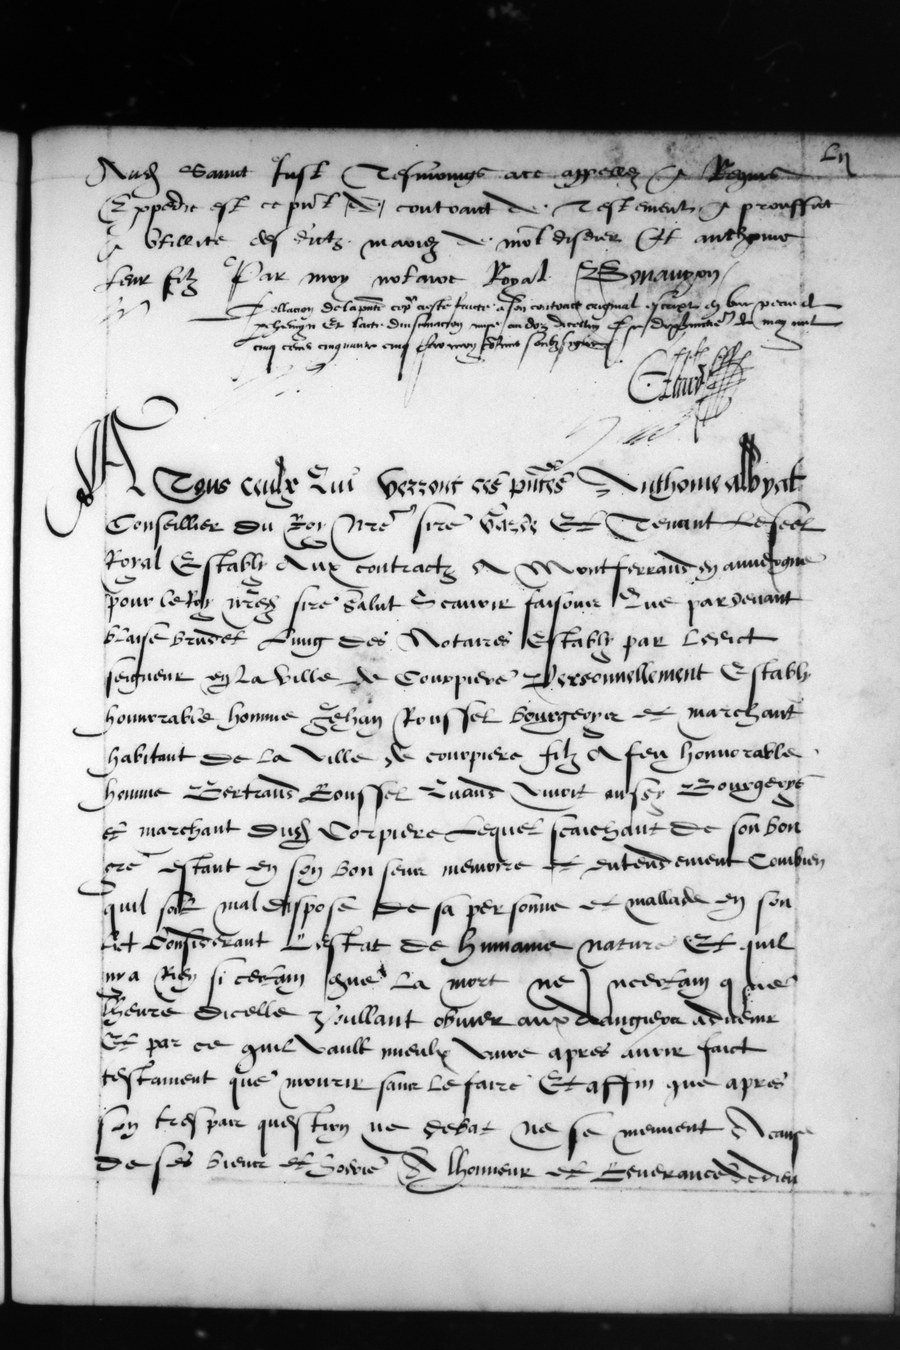 Lij
Aud Sainct Just Tesmoings ace appellez & Requis
Expedie est ce pnt contract de Testement & prouffict
& Utillite desditz mariez de Montdisdier Et anthoine
leur filz Par moy notaire Royal
Collacion de la pnte coppie a este faicte a son contract original escript en
et lacte dinsinuacion de may mil
cinq cens cinquante cinq par moy soubz signe
A Tous ceulx Qui verront ces pntes Anthoine
Conseillier du Roy nre sire Garde Et Tenant le seel
Royal Estably Aux contractz A Montferrand en auvergne
pour le Roy nred sire Salut Scavoir faisons Que pardevant
blaise brunel Lung des Notaires Estably par Ledict
seigneur en La Ville de Courpiere Personnellement Estably
honnorable homme Jehan Roussel bourgeoys et marchant
habitant de La Ville de courpiere filz A feu honnorable
homme Bertrand Roussel Quand Vivoit aussy Bourgeoys
et marchant dud Corpiere Lequel scaichant de son bon
gre estant en son bon sens memoire et entendement Combien
quil soit mal dispose de sa personne et mallade en son
lict Considerant Lestat de humaine nature Et quil
ny a Rien si certain que La mort ne Incertain que
lheure dicelle Voullant obvier aux dangiers advenir
Et par ce quil vault mieulx vivre apres avoir faict
testament que mourir sans Le faire Et affin que apres
son trespas question ne debat ne se meuvent A cause
de ses biens et hoirie A lhonneur et Reverance de dieu